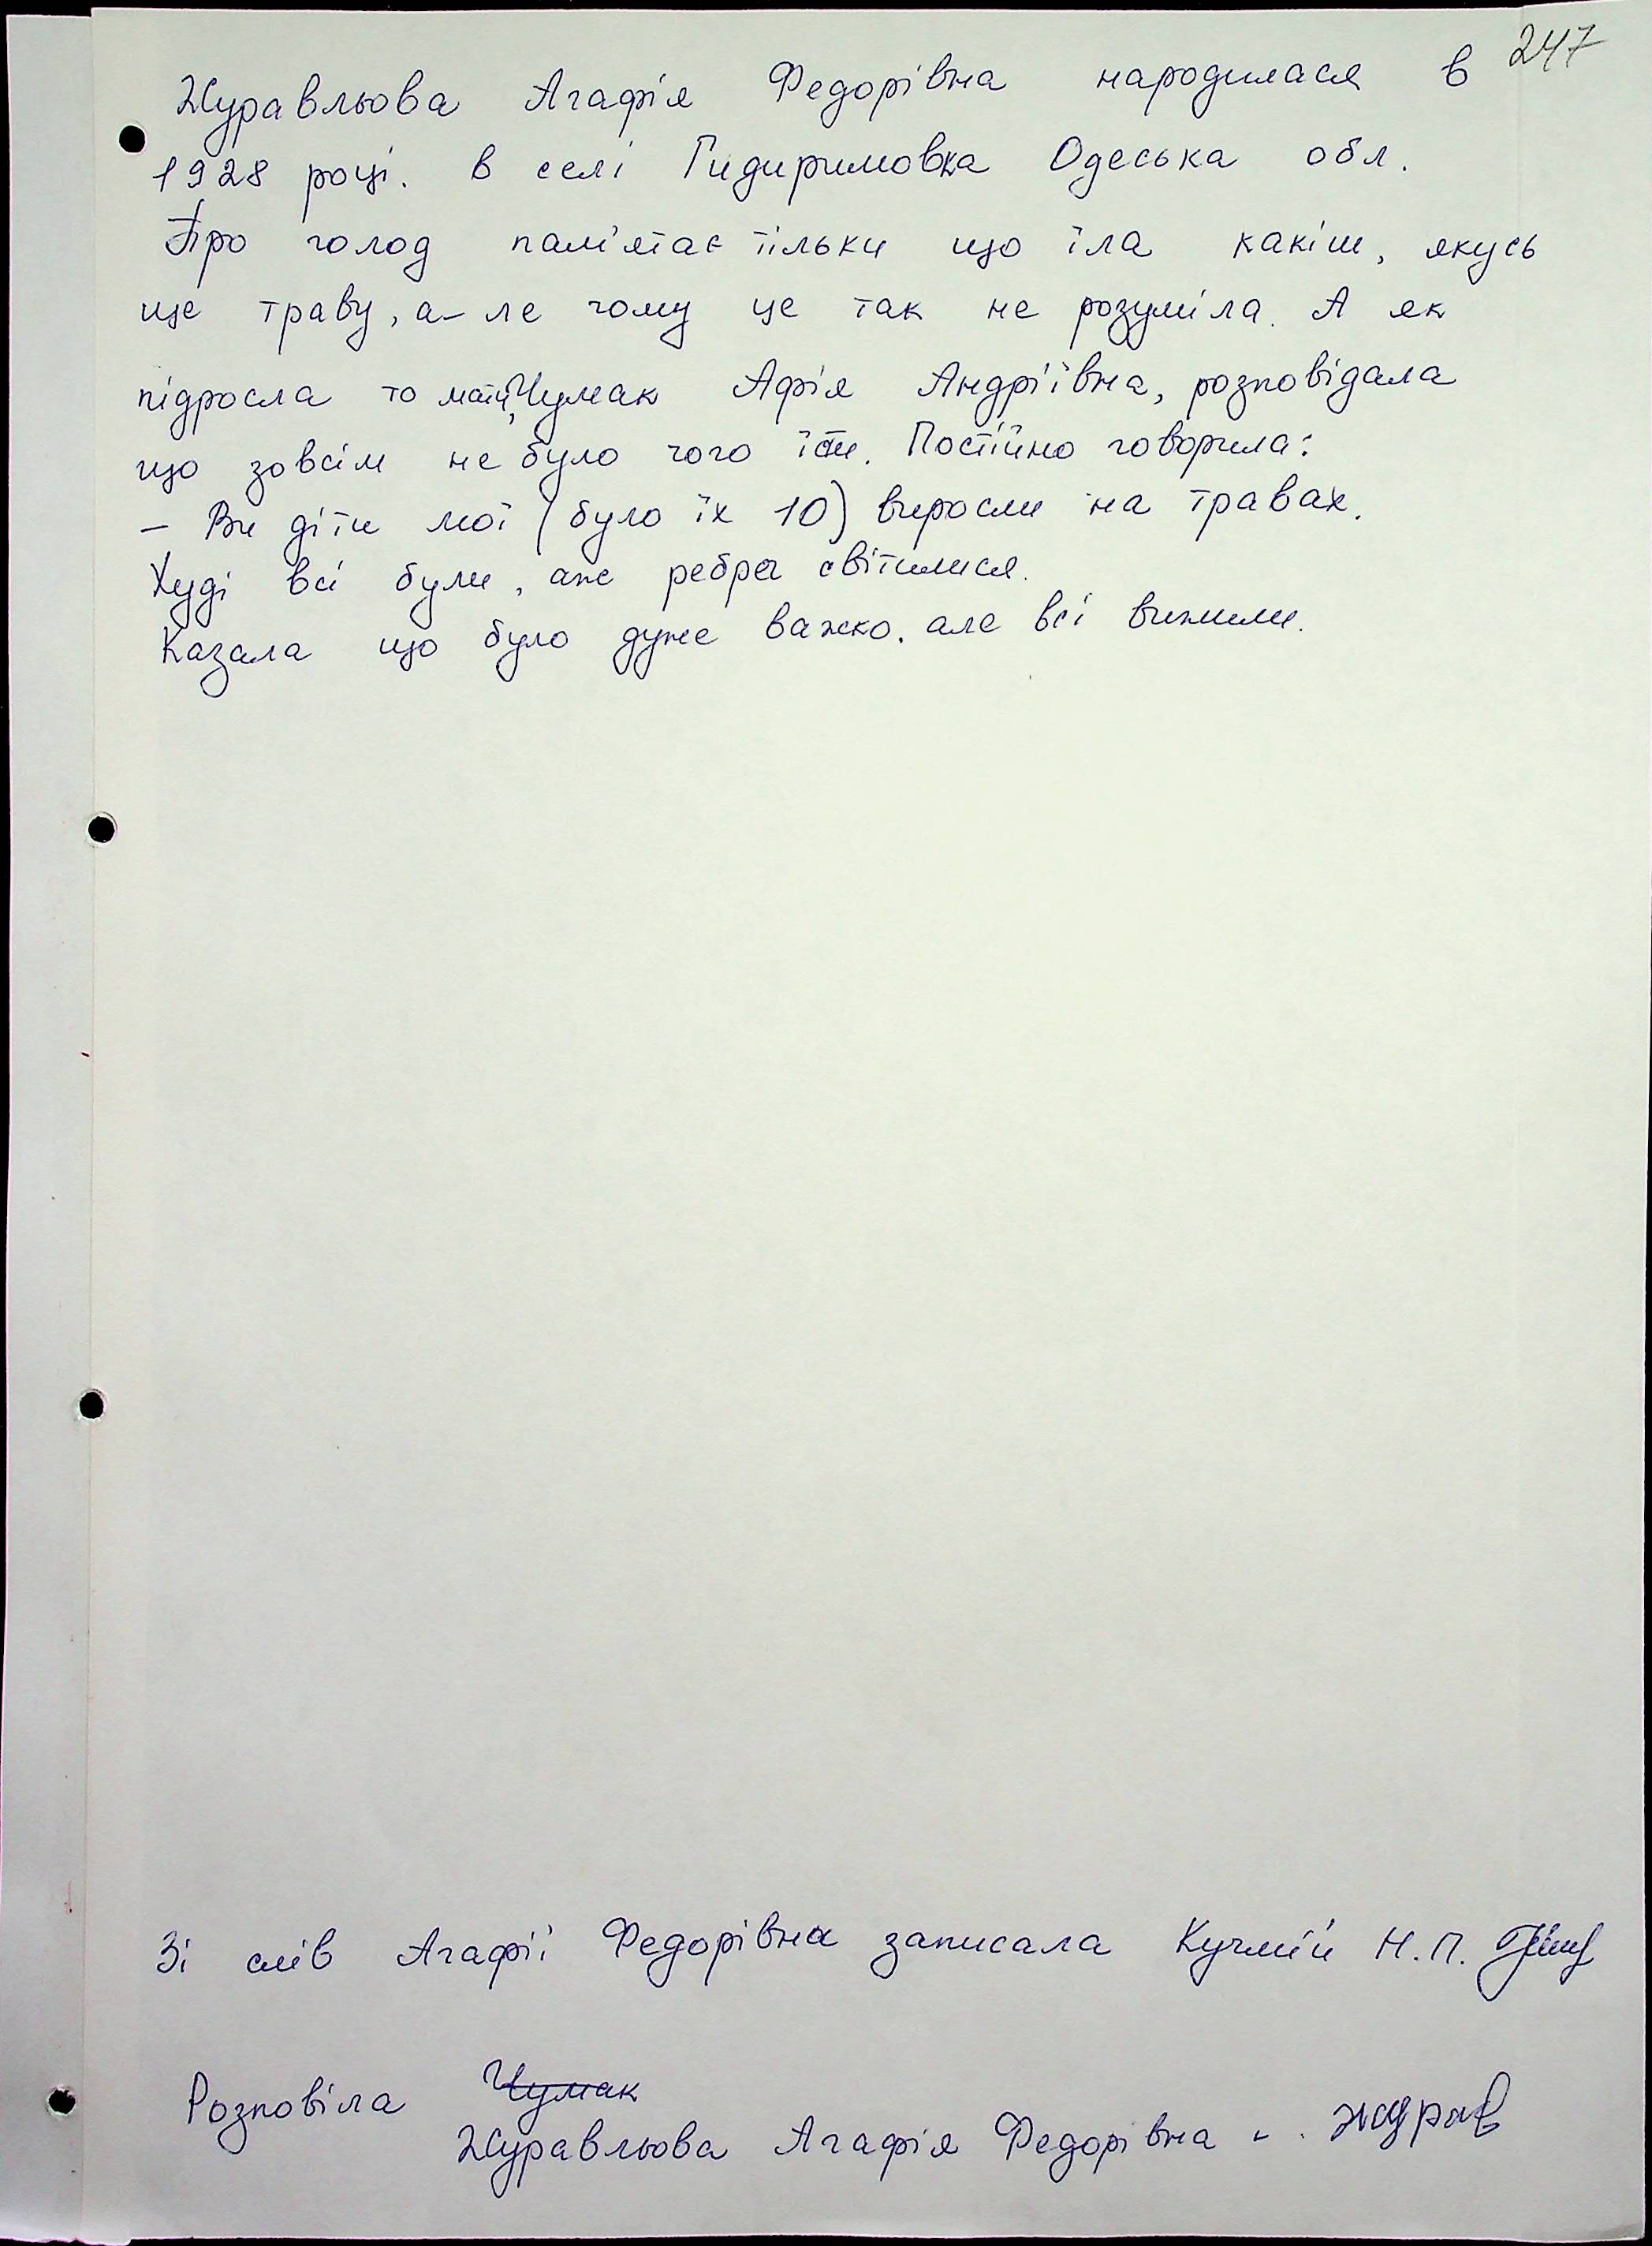 247
Журавльова Агафія Федорівна народилася в
1928 році. в селі Гидиримовка Одеська обл.
Про голод пам'ятає тільки що їла какіш, якусь
ще траву, а-ле чому це так не розуміла. А як
підросла то мати, Чумак Афія Андріївна, розповідала
що зовсім не було чого їсти. Постійно говорила:
– Ви діти мої (було їх 10) виросли на травах.
Худі всі були, аж ребра світилися.
Казала що було дуже важко. але всі вижили.
Зі слів Агафії Федорівна записала Кучмій Н.П.
Розповіла Чумак
Журавльова Агафія Федорівна - Журав